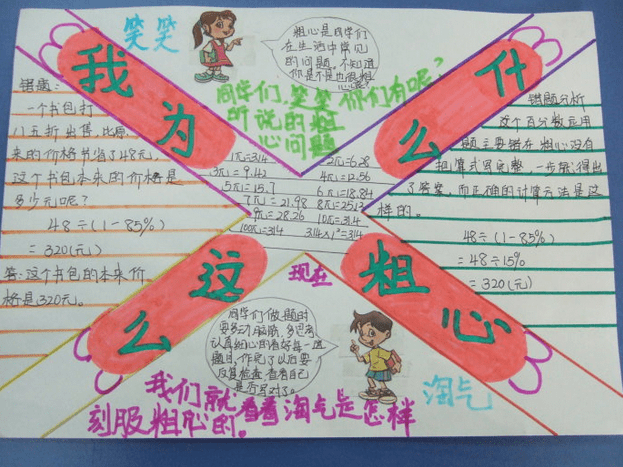 我为什么这么粗心
笑笑
粗心是同学们
在生活中常见
的问题，不知道
你是不是也很粗
心呢？
同学们，笑笑你们有呢？
所说的粗
心问题
错题：
一个书包打
八五折出售，比原
来的价格节省了48元，
这个书包本来的价格是
多少元呢？
48÷(1-85%)
=320(元)
答：这个书包的本来价
格是320元。
1π=3.14 2π=6.28
3π=9.42 4π=12.56
5π=15.7 6π=18.84
7π=21.98 8π=25.12
9π=28.26 10π=31.4
100π=314 3.14×1²=3.14
错题分析
这个百分数运用
题主要错在粗心没有
把算式写完整，一步就得出
了答案，而正确的计算方法是这
样的。
48÷(1-85%)
=48÷15%
=320(元)
现在
同学们做题时
要多动脑筋，多思考
认真细心的看好每一道
题目，作完了以后要
反复检查，看看自己
是否写对了。
淘气
我们就看看淘气是怎样
刻服粗心的。